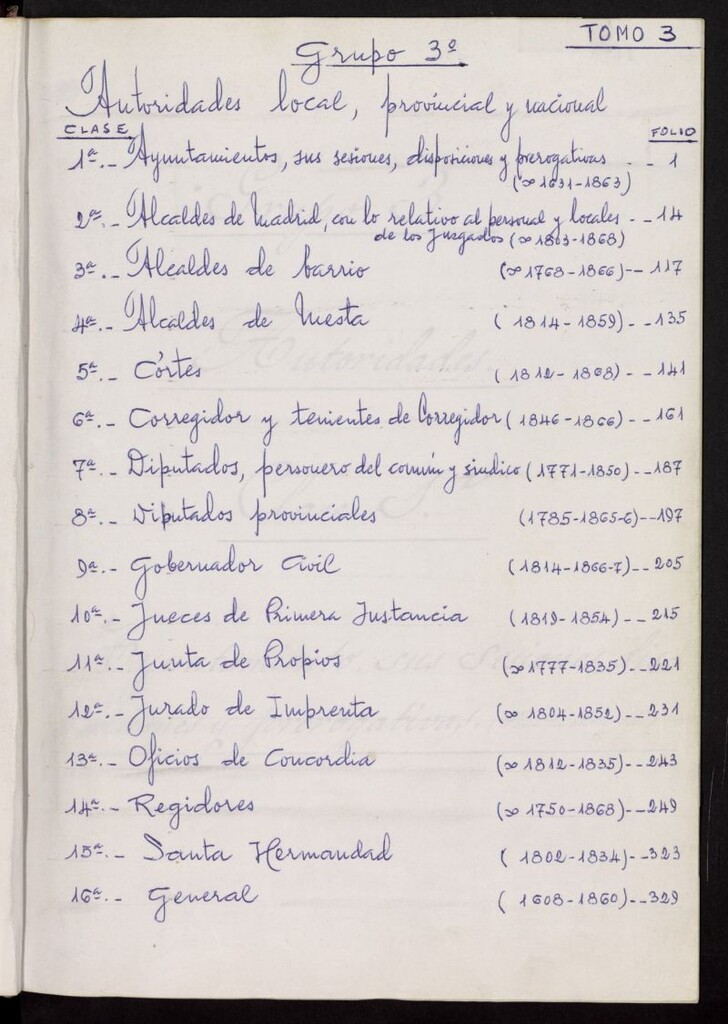 TOMO 3
Grupo 3º
Autoridades local, provincial y nacional
CLASE FOLIO
1ª.- Ayuntamientos, sus sesiones, disposiciones y prerogativas - - 1
(∞ 1631-1863)
2ª.- Alcaldes de Madrid, con lo relativo al personal y locales - - 14
de los Juzgados (∞ 1803-1868)
3ª.- Alcaldes de barrio (∞ 1768-1866) - - 117
4ª.- Alcaldes de Mesta ( 1814-1859) - - 135
5ª.- Córtes ( 1812-1868) - - 141
6ª.- Corregidor y tenientes de Corregidor ( 1846-1866) - - 161
7ª.- Diputados, personero del común y sindico (1771-1850) - - 187
8ª.- Diputados provinciales (1785-1865-6) - - 197
9ª.- Gobernador Civil (1814-1866-7) - - 205
10ª.- Jueces de Primera Instancia (1819-1854) - - 215
11ª.- Junta de Propios (∞ 1777-1835) - - 221
12ª.- Jurado de Imprenta (∞ 1804-1852) - - 231
13ª.- Oficios de Concordia (∞ 1812-1835) - - 243
14ª.- Regidores (∞ 1750-1868) - - 249
15ª.- Santa Hermandad ( 1802-1834) - - 323
16ª.- General ( 1608-1860) - - 329